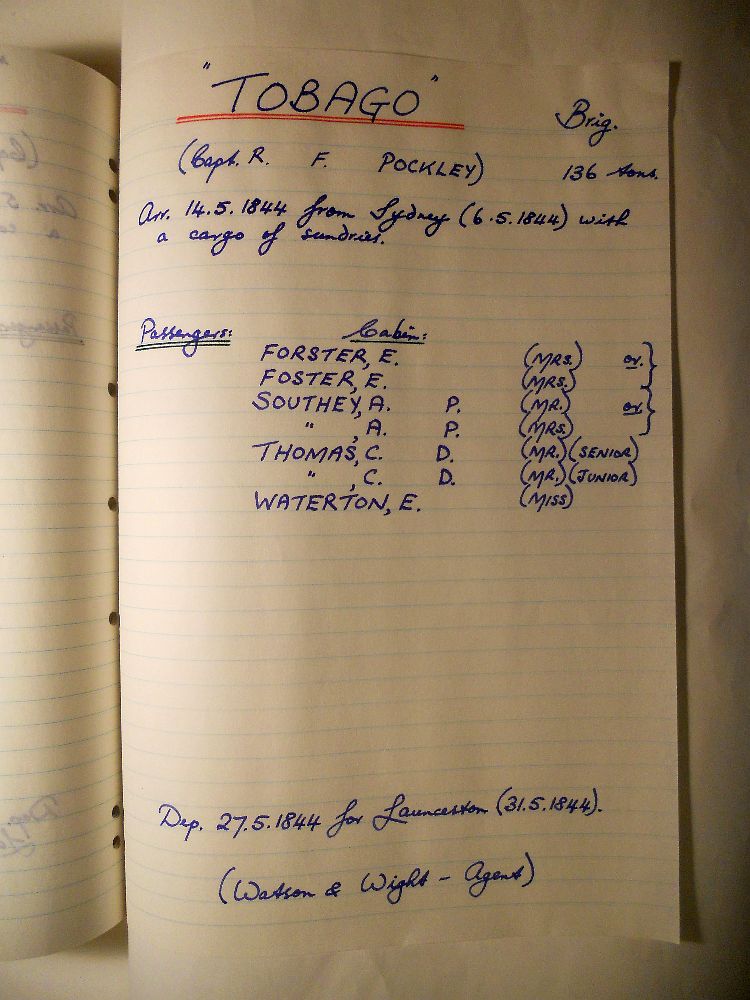 "TOBAGO"
Brig.
(Capt. R. F. POCKLEY) 136 tons.
Arr. 14.5.1844 from Sydney (6.5.1844) with
a cargo of sundries.
Passengers: Cabin:
FORSTER, E. (MRS.) or. }
FOSTER, E. (MRS.)
SOUTHEY, A. P. (MR.) or. }
" , A. P. (MRS.)
THOMAS, C. D. (MR.) (SENIOR)
" , C. D. (MR.) (JUNIOR)
WATERTON, E. (MISS)
Dep. 27.5.1844 for Launceston (31.5.1844).
(Watson & Wight - Agent)